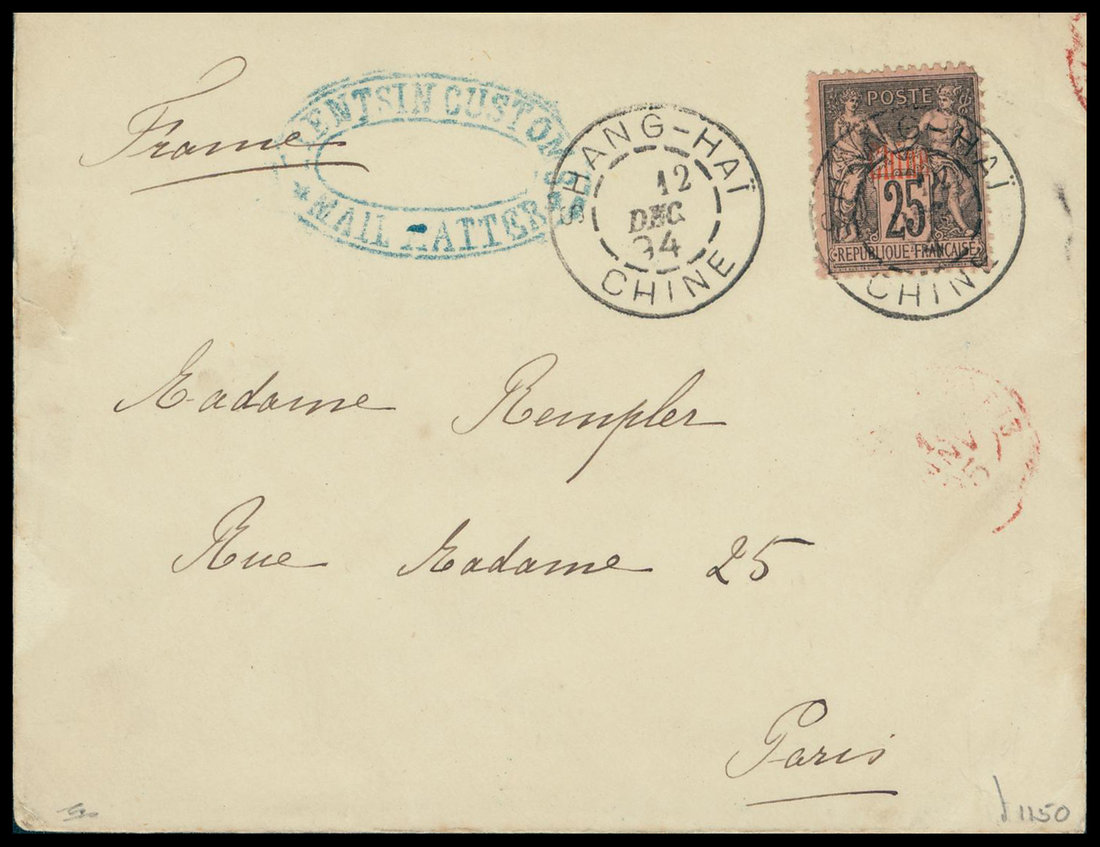 France
TIENTSIN CUSTOMS
MAIL MATTER
SHANG-HAÏ
12
DEC
94
CHINE
POSTE
25
REPUBLIQUE FRANÇAISE
CHINE
Madame Rempler
Rue Madame 25
Paris
1150